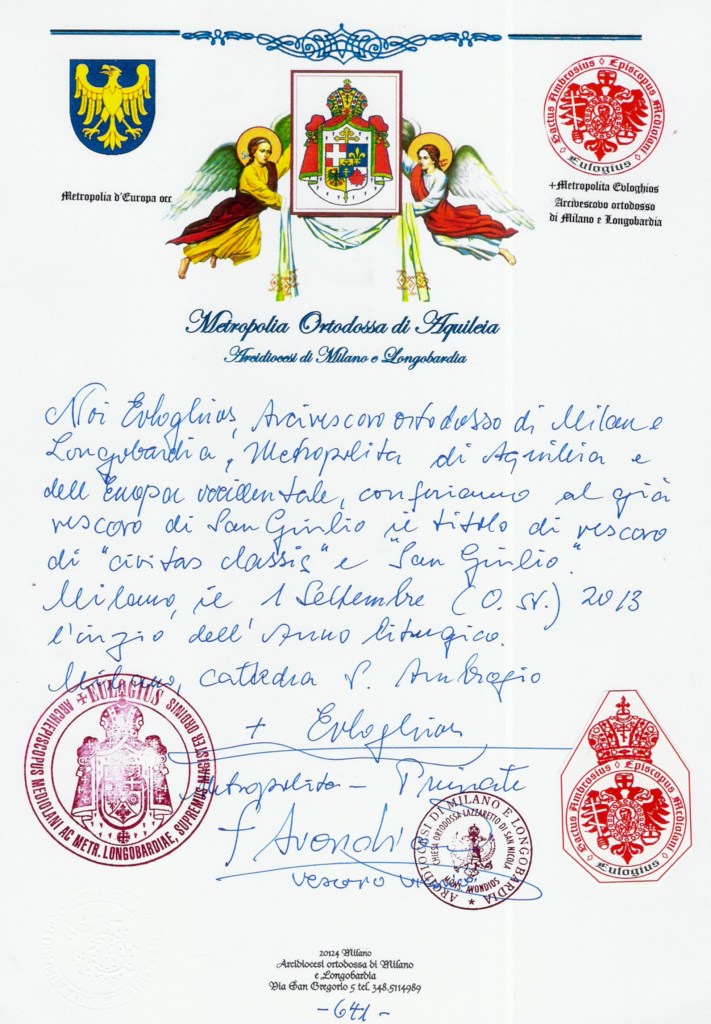 Metropolia d'Europa occ
Sactus Ambrosius ◊ Episcopus Mediolani
Eulogius
+Metropolita Evloghios
Arcivescovo ortodosso
di Milano e Longobardia
Metropolia Ortodossa di Aquileia
Arcidiocesi di Milano e Longobardia
Noi Evloghios, Arcivescovo ortodosso di Milano e
Longobardia, Metropolita di Aquileia e
dell'Europa occidentale, conferiamo al già
vescovo di San Giulio il titolo di vescovo
di "civitas classis" e "San Giulio".
Milano, il 1 Settembre (O. st.) 2013
l'inizio dell'Anno liturgico.
Milano, cattedra S. Ambrogio
+ Evloghios
Metropolita - Primate
+ Avondios
vescovo
+EULOGIUS
ARCHIEPISCOPUS MEDIOLANI AC METR. LONGOBARDIAE, SUPREMUS MAGISTER ORDINIS
ARCIDIOCESI DI MILANO E LONGOBARDIA
CHIESA ORTODOSSA-LAZZARETTO DI SAN NICOLA
MONS. AVONDIOS
Sactus Ambrosius ◊ Episcopus Mediolani
Eulogius
20124 Milano
Arcidiocesi ortodossa di Milano
e Longobardia
Via San Gregorio 5 tel. 348.5114989
-641-